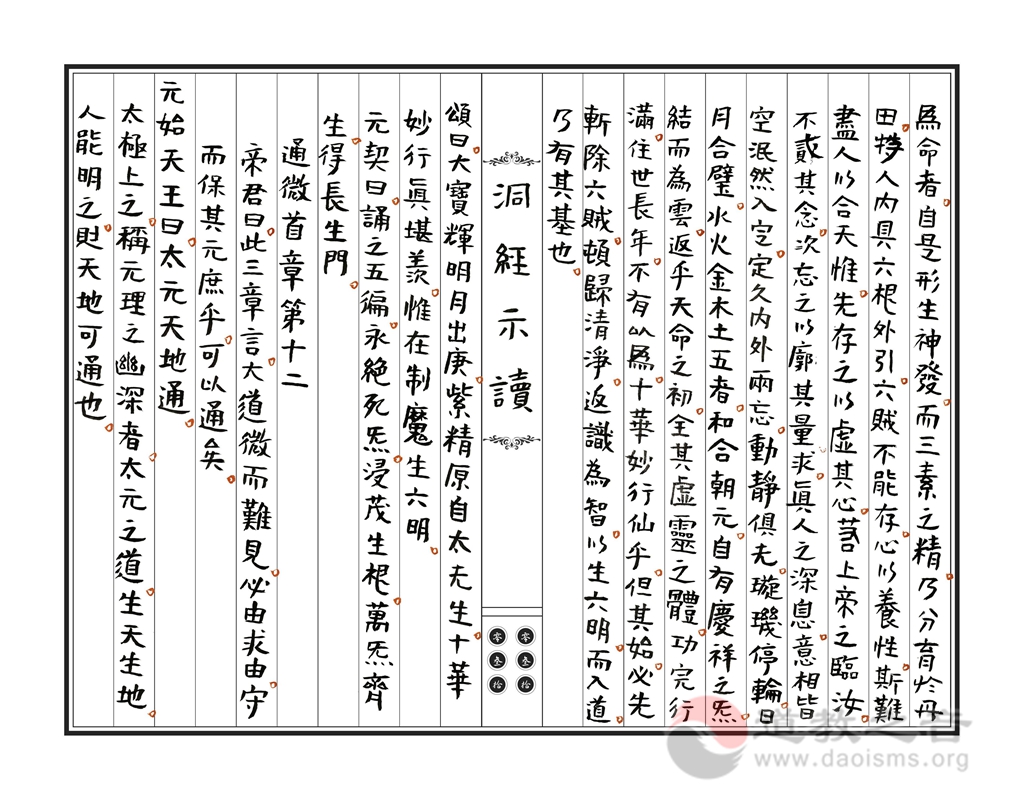 為命者自是形生神發而三素之精乃分育於丹
田矧人內具六根外引六賊不能存心以養性斯難
盡人以合天惟先存之以虛其心若上帝之臨汝
不貳其念次忘之以廓其量求眞人之深息意相皆
空泯然入定定久內外兩忘動靜俱无璇璣停輪日
月合璧水火金木土五者和合朝元自有慶祥之炁
結而為雲返乎天命之初全其虛靈之體功完行
滿住世長年不有以為十華妙行仙乎但其始必先
斬除六賊頓歸清淨返識為智以生六明而入道
乃有其基也
洞經示讀
零叁拾
零叁拾
頌曰大寶輝明月出庚紫精原自太无生十華
妙行眞堪羡惟在制魔生六明
元契曰誦之五徧永絕死炁浸茂生根萬炁齊
生得長生門
通微首章第十二
帝君曰此三章言大道微而難見必由求由守
而保其元庶乎可以通矣
元始天王曰太元天地通
太極上之稱元理之幽深者太元之道生天生地
人能明之則天地可通也
道教之音
www.daoisms.org